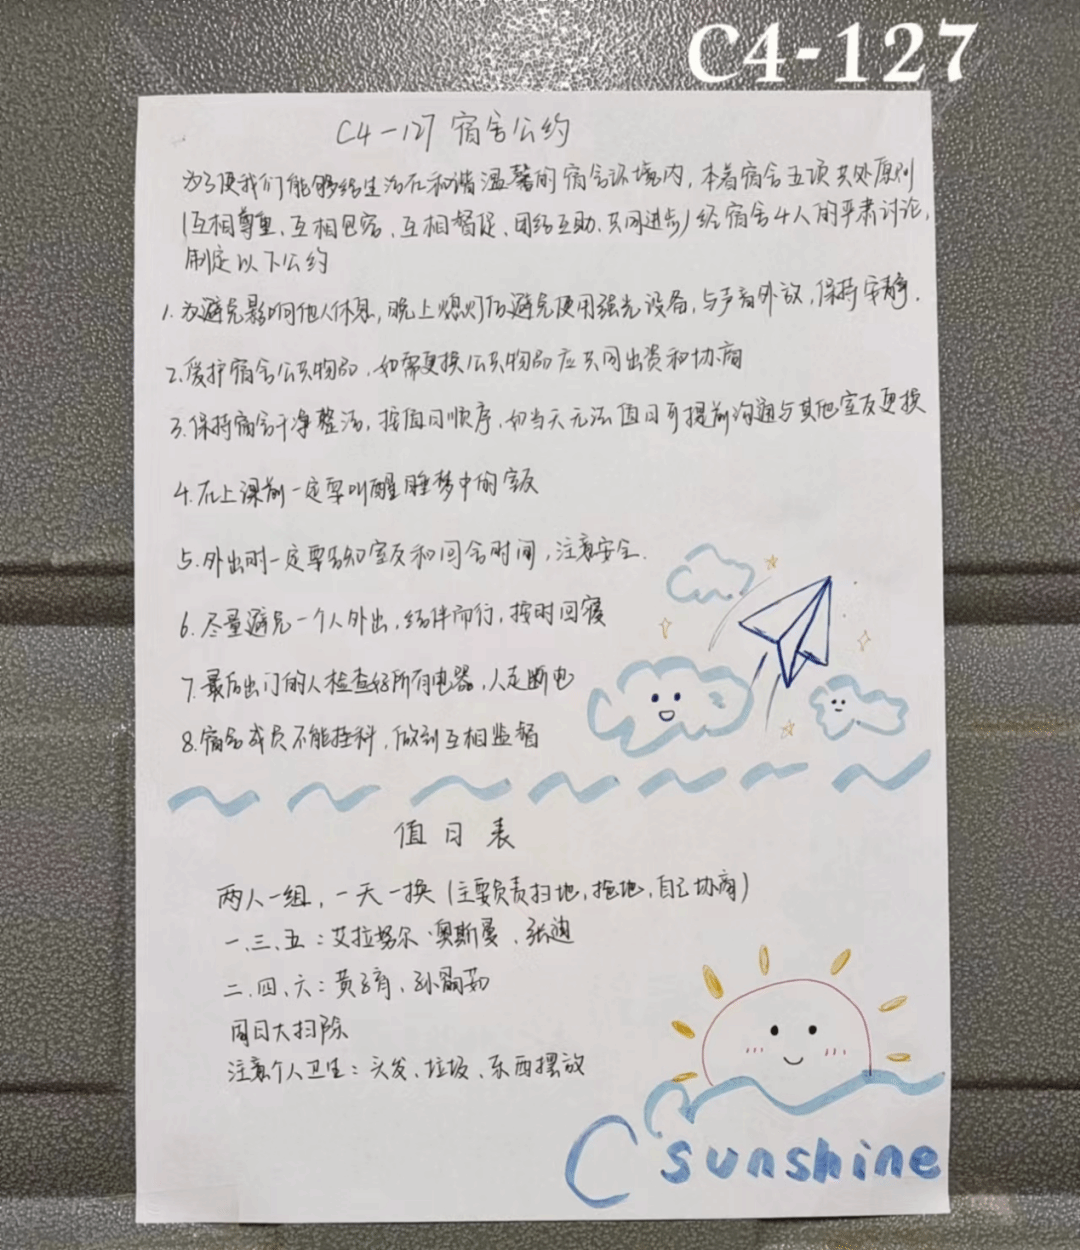 C4-127
C4-127 宿舍公约
为了使我们能够给生活在和谐温馨的宿舍环境内,本着宿舍五项共处原则
(互相尊重、互相包容、互相督促、团结互助、共同进步)经宿舍4人的严肃讨论,
制定以下公约
1.为避免影响他人休息,晚上熄灯后避免使用强光设备,与声音外放,保持安静.
2.爱护宿舍公共物品,如需更换公共物品应共同出资和协商
3.保持宿舍干净整洁,按值日顺序,如当天无法值日可提前沟通与其他室友更换
4.在上课前一定要叫醒睡梦中的室友
5.外出时一定要告知室友和回舍时间,注意安全.
6.尽量避免一个人外出,结伴而行,按时回寝
7.最后出门的人检查好所有电器,人走断电
8.宿舍成员不能挂科,做到互相监督
值日表
两人一组,一天一换(主要负责扫地,拖地,自己协商)
一.三.五:艾拉努尔·奥斯曼、张迪
二.四、六:黄子育、孙嗣茹
周日大扫除
注意个人卫生:头发、垃圾、东西摆放
sunshine